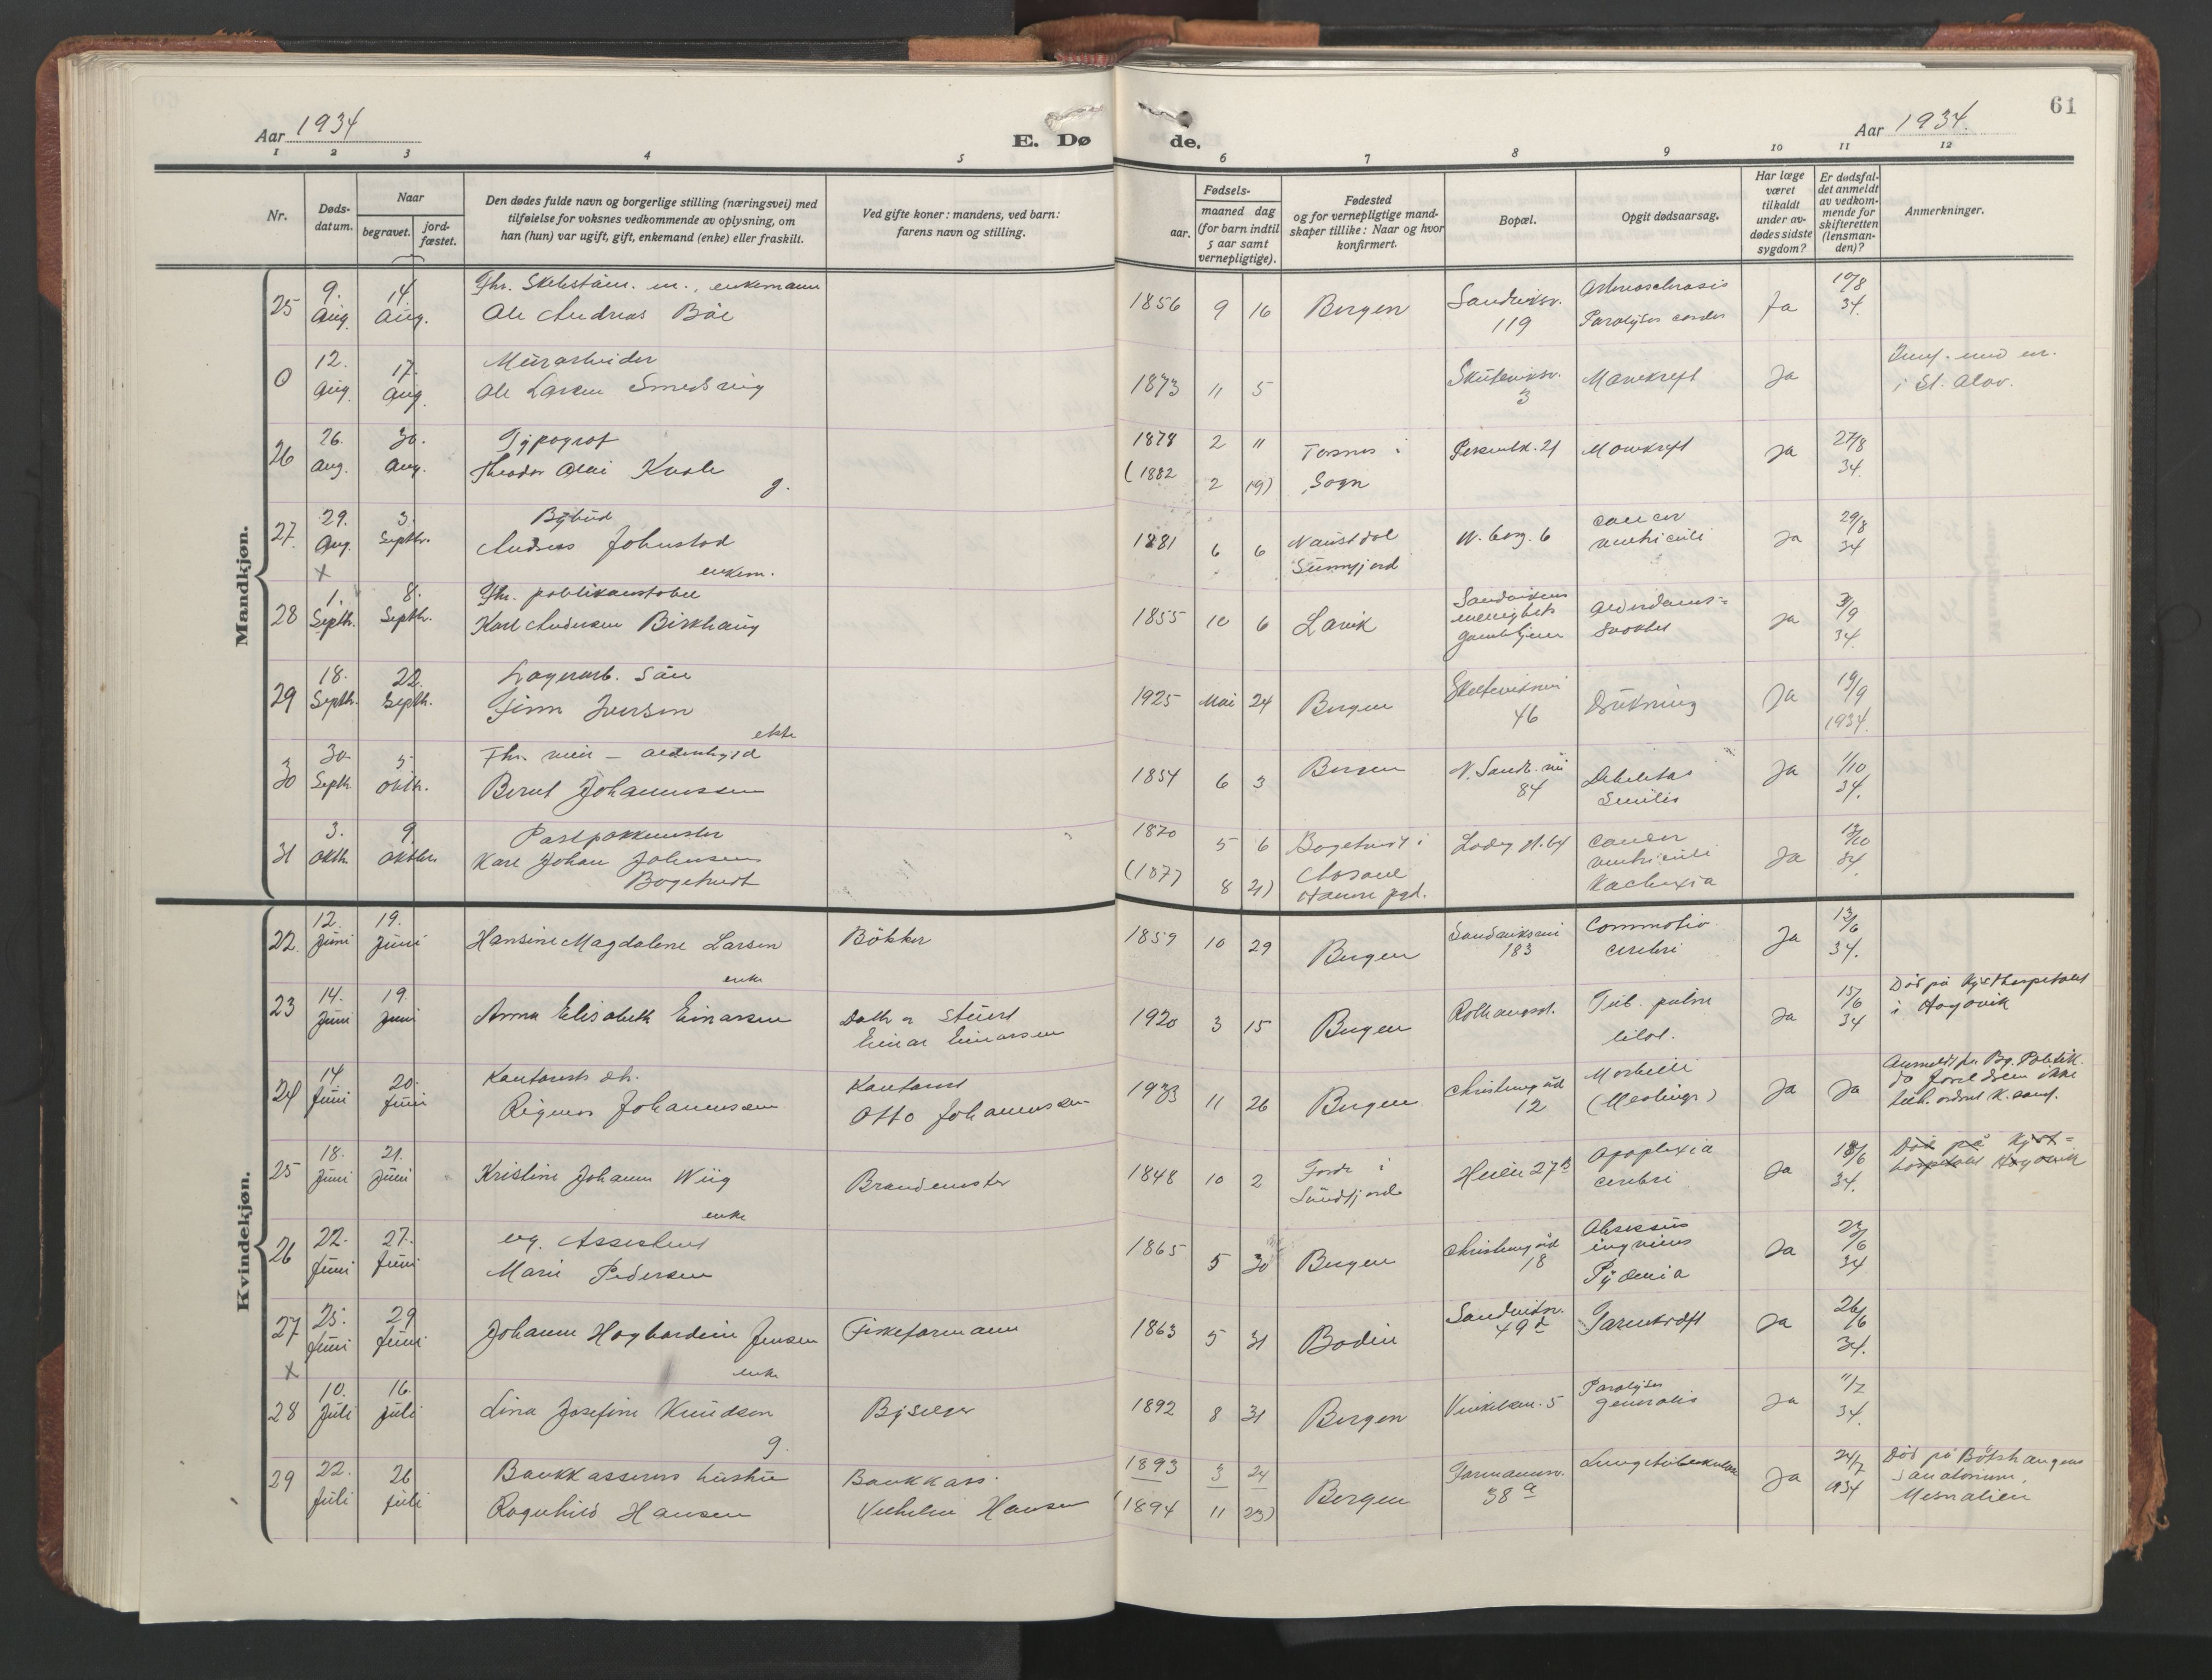 61
Aar 1934
E. Dø de.
Aar 1934.
1 2 3 4 5 6 7 8 9 10 11 12
Nr.
Døds-
datum.
Naar
begravet.
jord-
fæstet.
Den dødes fulde navn og borgerlige stilling (næringsvei) med
tilføielse for voksnes vedkommende av oplysning, om
han (hun) var ugift, gift, enkemand (enke) eller fraskilt.
Ved gifte koner: mandens, ved barn:
farens navn og stilling.
Fødsels-
aar.
maaned dag
(for barn indtil
5 aar samt
vernepligtige).
Fødested
og for vernepligtige mand-
skaper tillike: Naar og hvor
konfirmert.
Bopæl.
Opgit dødsaarsag.
Har læge
været
tilkaldt
under av-
dødes sidste
sygdom?
Er dødsfal-
det anmeldt
av vedkom-
mende for
skifteretten
(lensman-
den)?
Anmerkninger.
Mandkjøn.
25 9. Aug. 14. Aug. Fhr. enkemann
Ole Andreas Böe
1856 9 16 Bergen Sandviksv. 119 Paralyses cordis Ja 10/8 34.
0 12. Aug. 17. Aug. Murarbeider
Ole Larsen Smedsvig
1873 11 5 Skuteviksv. 3 Mavekreft Ja
i St. Olav.
26 26. Aug. 30. Aug. Typograf
Theodor Olai Kvale g.
1878 2 "
(1882 2 19)
i Sogn 21 Mavekreft Ja 27/8 34.
27 29. Aug. 3. Septbr. Bybud
Andreas Johnstad
enkem.
1881 6 6 Naustdal
Sunnfjord
6 cancer
ventriculi Ja 29/8 34
x
28 1. Septbr. 8. Septbr. Fhr.
Karl Andersen Birkhaug
1855 10 6 Lavik Sandvikens
menighets
gamlehjem
Alderdoms-
svakhet Ja /9 34.
29 18. Septbr. 22. Septbr. Lagerarb. sön
Finn Iversen
1925 Mai 24 Bergen Skuteviksvei
46 Drukning Ja 19/9 1934.
30 30 Septbr. 5 Oktbr. Fhr. ekke
Bernt Johannessen
1854 6 3 Bergen N. Sandv. vei
84 Debilitas
Senilis Ja 1/10 34.
31 3. Oktbr. 9 Oktbr. Postpakkmester
Karl Johan Johnsen
Bogetvedt
1870 5 6
(1877 8 21)
Bogetvedt i
Hamre pgd.
Ladeg. gt. 64 cancer
ventriculi
Kachexia Ja /10 34.
Kvindekjøn.
22. 12. Juni 19. Juni Hansine Magdalene Larsen
enke
Bökker
1859 10 29 Bergen Sandviksvei
183 Commotio
cerebri Ja 13/6 34.
23 14. Juni 19. Juni Anna Elisabeth Einarsen
Datter av stuert
Einar Einarsen
1920 3 15 Bergen Rothaugsgt. Tub. pulm.
Ja 15/6 34
Död på Kysthospitalet
i Hagavik
24 14. Juni 20. Juni Kontorists dtr.
Rigmor Johannessen
Kontorist
Otto Johannessen
1933 11 26 Bergen Christinegård
12 Morbilli
(Meslinger) Ja Ja
25 18. Juni 21. Juni Kristine Johanne Wiig
enke
Brandmester
1848 10 2 Förde i
Sundfjord
Heien 27 b Apoplexia
cerebri Ja 18/6 34.
Död på Kyst-
hospitalet Hagavik
26 22. Juni 27. Juni ug. Assistent
Marie Pedersen
1865 5 30 Bergen Christinegård
18 Abscessus
inguinis
Pyæmia Ja 23/6 34
27 25. Juni 29 Juni Johanne Hagbardine Jensen
enke
Fiskeformann
1863 5 31 Bodin Sandviksv.
49 d Tarmkreft Ja 26/6 34.
x
28 10. Juli 16. Juli Lina Josefine Knudsen
g.
Byselger
1892 8 31 Bergen 5 Paralyses
generalis Ja 11/7 34.
29 22. Juli 26 Juli Bankkasserers hustru
Ragnhild Hansen
Bankkass.
Vilhelm Hansen
1893 3 24
(1894 11 23)
Bergen Formannsv.
38 a Lungetuberkulose Ja 24/7 1934
Död på
Sanatorium,
Mesnalien